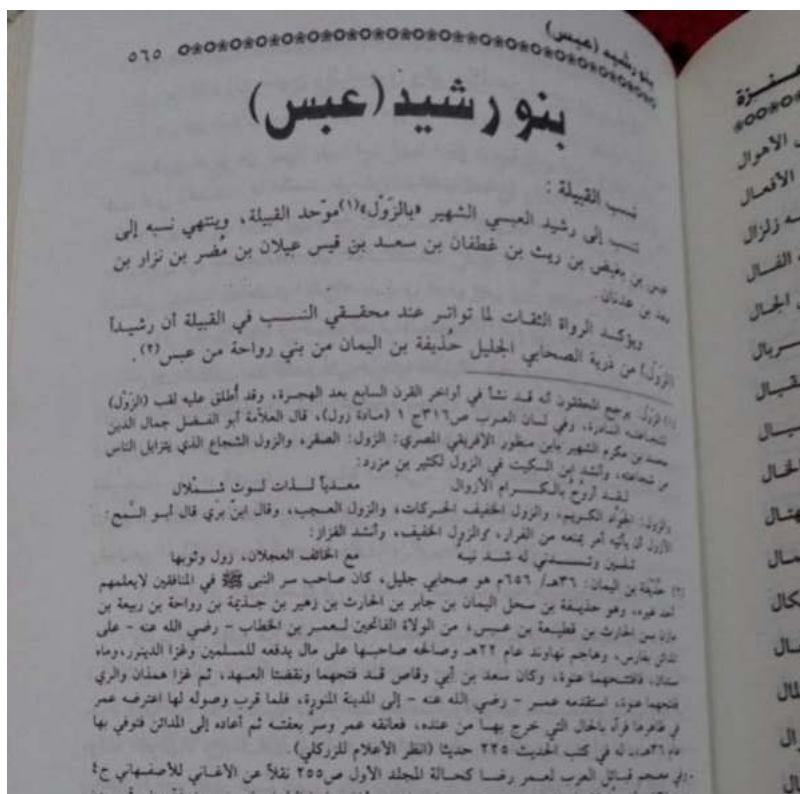 بنو رشيد (عبس)
٥٦٥
بنو رشيد (عبس)
نسب القبيلة :
تنسب إلى رشيد العبسي الشهير «بالزَوْل»(١) موّحد القبيلة، وينتهي نسبه إلى
عبس بن بغيض بن ريث بن غطفان بن سعد بن قيس عيلان بن مُضر بن نزار بن
معد بن عدنان.
ويؤكد الرواة الثقات لما تواتر عند محققي النسب في القبيلة أن رشيداً
الزَوَل من ذرية الصحابي الجليل حُذيفة بن اليمان من بني رواحة من عبس(٢).
(١) الزَوَل: يرجح المحققون أنه قد نشأ في أواخر القرن السابع بعد الهجرة، وقد أُطلق عليه لقب (الزَوْل)
لشجاعته النادرة، وفي لسان العرب ص٣١٦ج ١ (مادة زول)، قال العلاّمة أبو الفضل جمال الدين
محمد بن مكرم الشهير بابن منظور الإفريقي المصري: الزول: الصقر، والزول الشجاع الذي يتزايل الناس
من شجاعته، وأنشد ابن السكيت في الزول لكثير بن مزرد:
لقد أروحُ بالكرام الأزوال معدياً لذات لوث شملال
والزول: الجواد الكريم، والزول الخفيف الحركات، والزول العجب، وقال ابن بري قال أبو السَّمح:
الأزول أن يأتيه أمر يمنعه من الفرار، والزول الخفيف، وأنشد القزاز:
تلين وتستدني له شدنية مع الخائف العجلان، زول وثوبها
(٢) حُذَيْفة بن اليمان: ٣٦هـ/ ٦٥٦م هو صحابي جليل، كان صاحب سر النبى ﷺ في المنافقين لايعلمهم
أحد غيره، وهو حذيفة بن سحل اليمان بن جابر بن الحارث بن زهير بن جذيمة بن رواحة بن ربيعة بن
مازن بن الحارث بن قطيعة بن عبس، من الولاة الفاتحين لعمر بن الخطاب – رضي الله عنه – على
المدائن بفارس، وهاجم نهاوند عام ٢٢هـ وصالحه صاحبها على مال يدفعه للمسلمين وغزا الدينور، وماه
سندان، فافتتحهما عنوة، وكان سعد بن أبي وقاص قد فتحهما ونقضتا العهد، ثم غزا همذان والري
فتحهما عنوة، استقدمه عمر – رضي الله عنه – إلى المدينة المنورة، فلما قرب وصوله لها اعترضه عمر
في ظاهرها فرآه بالحال التي خرج بها من عنده، فعانقه عمر وسرَّ بعفته ثم أعاده إلى المدائن فتوفي بها
عام ٣٦هـ، له في كتب الحديث ٢٢٥ حديثا (انظر الأعلام للزركلي).
- وفي معجم قبائل العرب لعمر رضا كحالة المجلد الأول ص٢٥٥ نقلاً عن الأغاني للأصفهاني ج٤
عنزة
الأهوال
الأفعال
زلزال
الفال
الجال
ربال
الخال